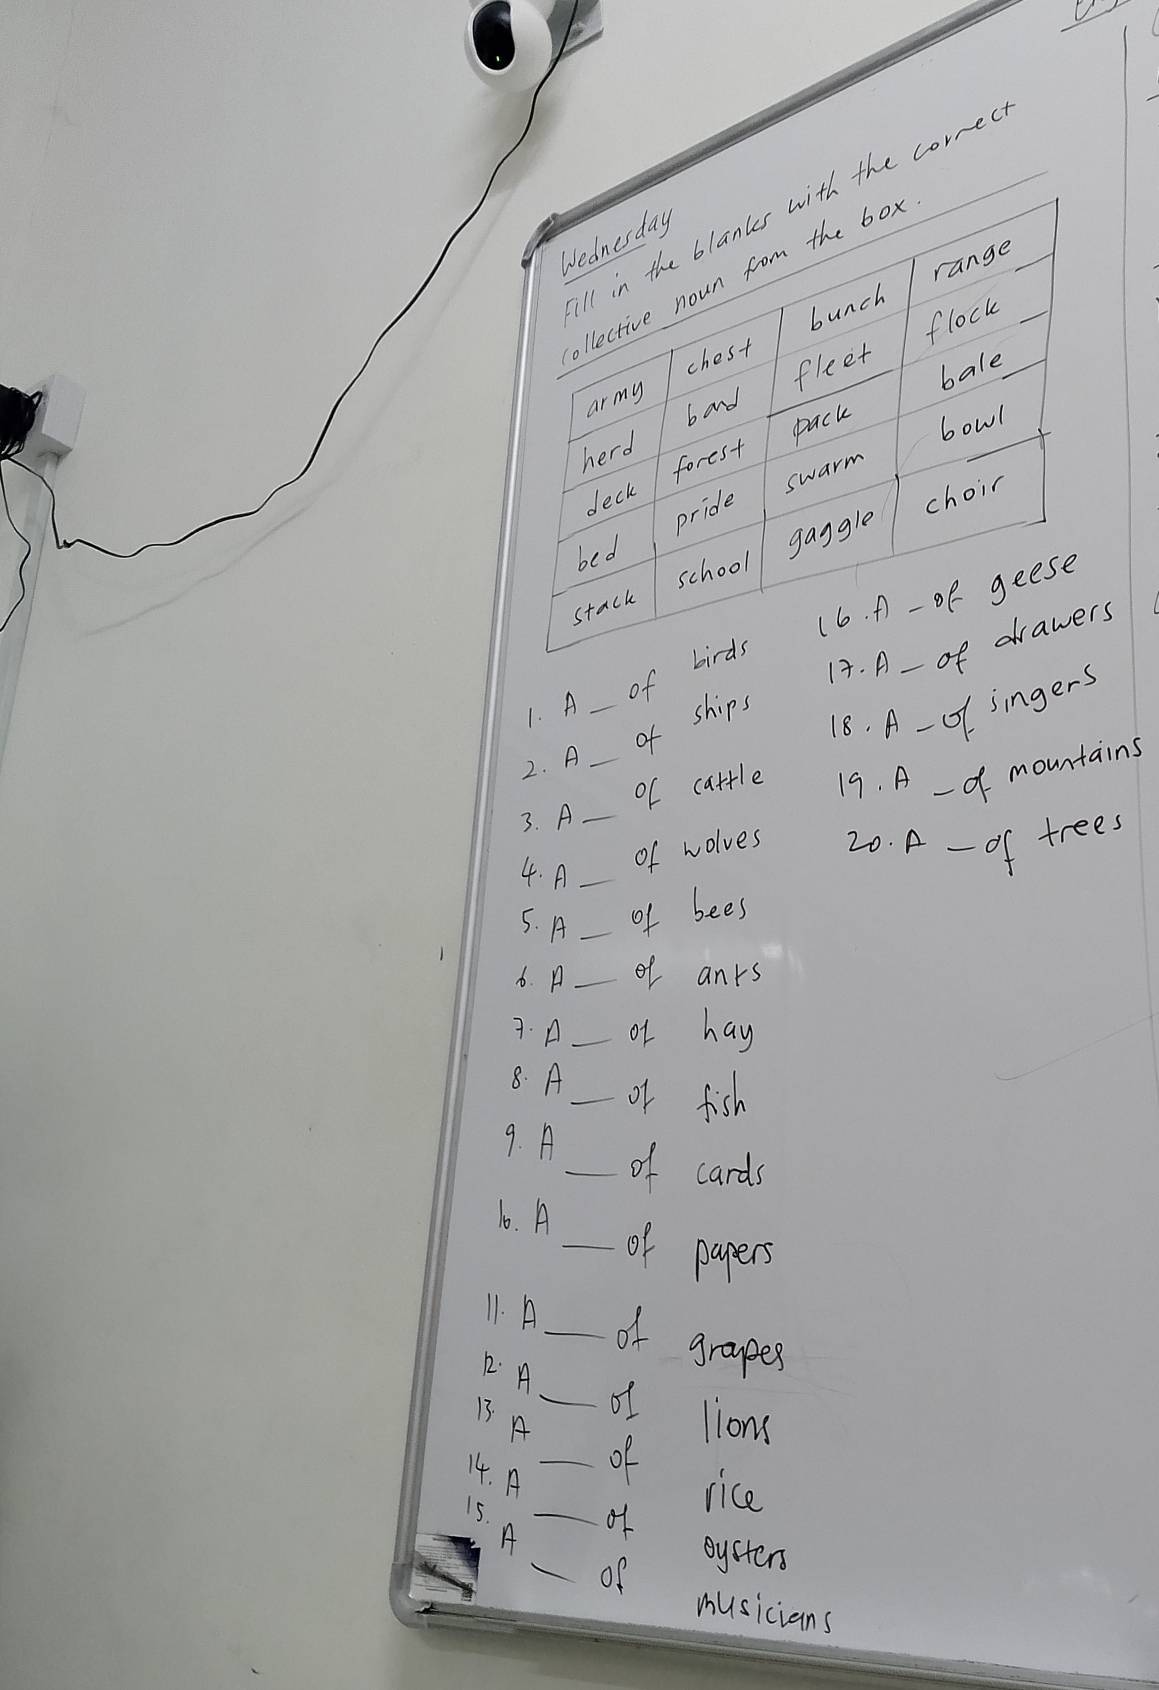 Wednesday
Fill in the blanks with the correct
collective noun from the box.
army chest bunch range
herd band fleet flock
deck forest pack bale
bed pride swarm bowl
stack school gaggle choir
1. A __ of birds
2. A __ of ships
3. A __ of cattle
4. A __ of wolves
5. A __ of bees
6. A __ of ants
7. A __ of hay
8. A __ of fish
9. A __ of cards
10. A __ of papers
11. A __ of grapes
12. A __ of lions
13. A __ of rice
14. A __ of oysters
15. A __ of musicians
16. A __ of geese
17. A __ of drawers
18. A __ of singers
19. A __ of mountains
20. A __ of trees